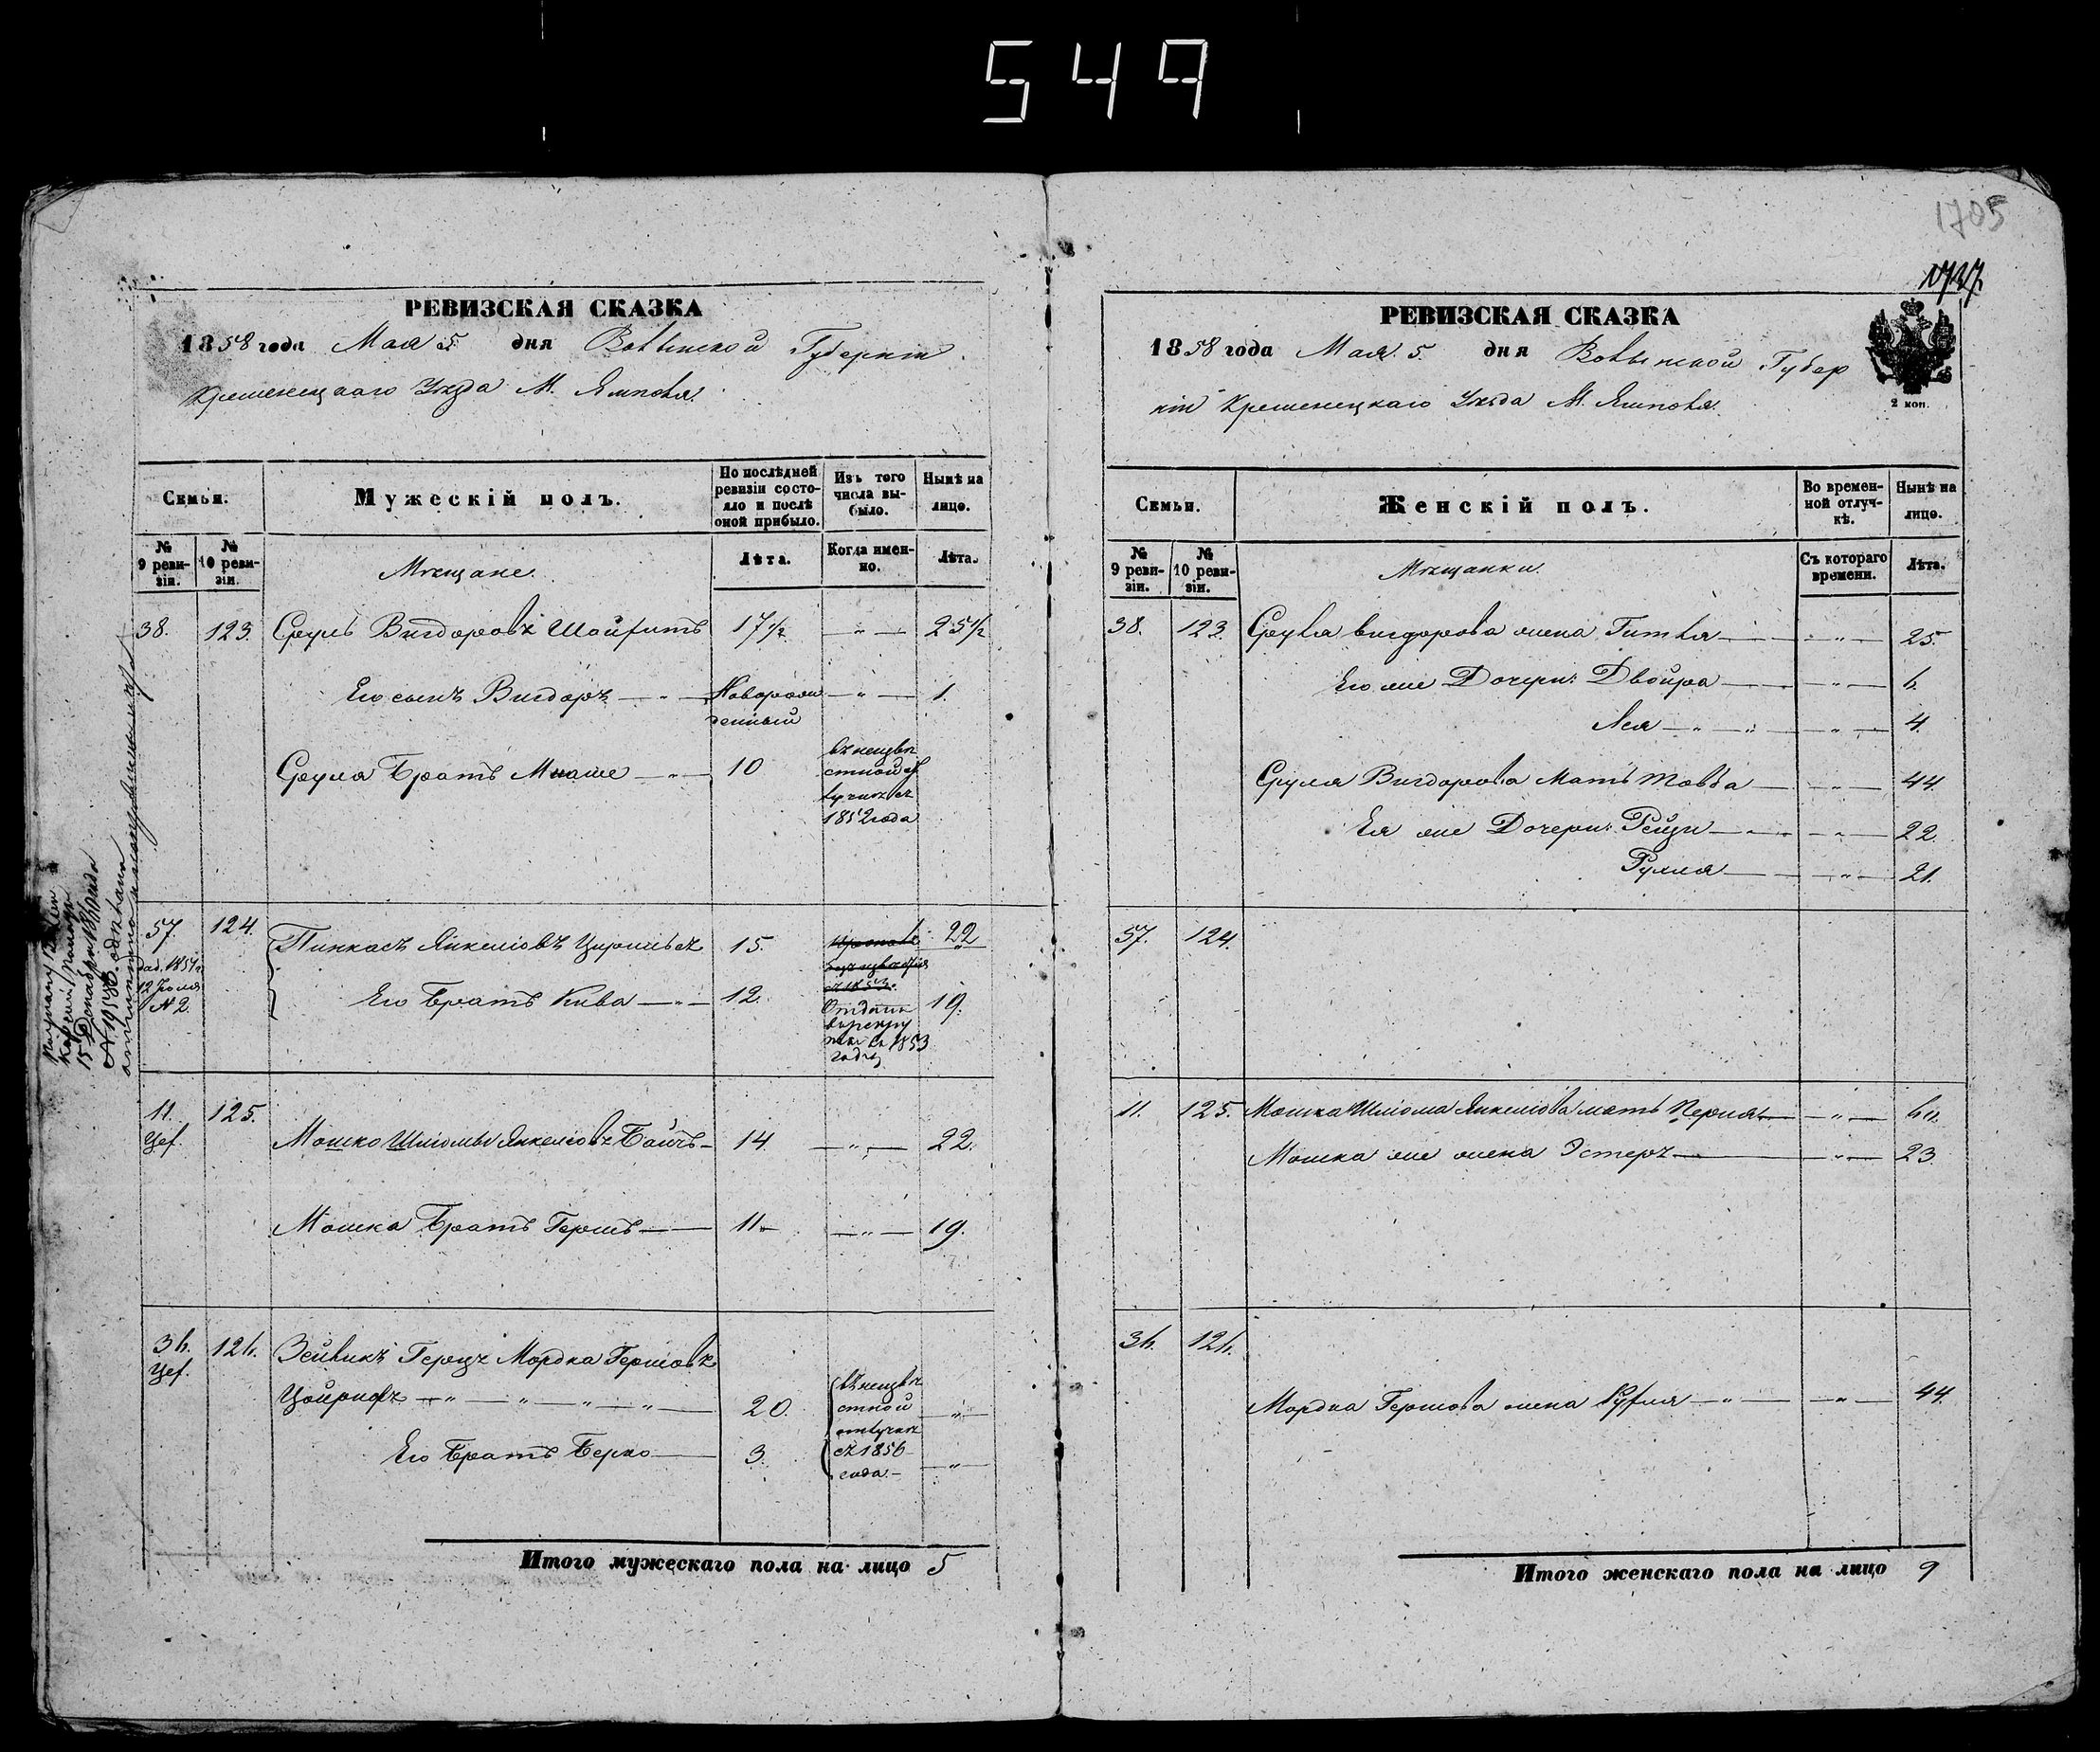 549
1705
1737
РЕВИЗСКАЯ СКАЗКА
1858 года Мая 5 дня Волынской Губерніи
Кременецкаго Уѣзда М. Ямполя.
Семьи.
Мужескій полъ.
По послѣдней ревизіи состояло и послѣ оной прибыло.
Изъ того числа выбыло.
Нынѣ на лицо.
№ 9 ревизіи.
№ 10 ревизіи.
Мѣщане.
Лѣта.
Когда именно.
Лѣта.
38. 123. Сруль Вигдоровъ Шойфитъ 17½ — „ — 25½
Его сынъ Вигдоръ — „ — Новорожденный — „ — 1.
Сруля Братъ Мнаше — „ — 10 въ неизвѣстной отлучкѣ съ 1852 года
57. 124. Пинкасъ Янкеліовъ 15. 22
доп. 1857 г. 12 Іюля № 2
Его Братъ Кива — „ — 12. Отданъ въ рекруты въ 1853 году 19.
11. 125. Мошко Шліомы Янкеліовъ 14 — „ — 22.
Цеф.
Мошка Братъ Гершъ — 11 — „ — 19.
36. 126. Зейликъ Герцъ Мордка Гершовъ
Цеф.
Цойрифъ — „ — „ — „ — „ — 20. въ неизвѣстной отлучкѣ съ 1856 года — „ —
Его Братъ Берко — 3. — „ —
Итого мужескаго пола на лицо 5
РЕВИЗСКАЯ СКАЗКА
1858 года Мая. 5 дня Волынской Губер
ніи Кременецкаго Уѣзда М. Ямполя.
2 коп.
Семьи.
Женскій полъ.
Во временной отлучкѣ.
Нынѣ на лицо.
№ 9 ревизіи.
№ 10 ревизіи.
Мѣщанки.
Съ котораго времени.
Лѣта.
38. 123. Сруля Вигдорова жена Гитля — „ — 25.
Его же Дочери: Двойра — „ — 6.
Лея — „ — „ — „ — 4.
Сруля Вигдорова Мать Товба — „ — 44.
Ея же Дочери: Рейзи — „ — „ — 22.
Рухля — „ — 21.
57. 124.
11. 125. Мошка Шліома Янкеліова мать Перля — „ —
Мошка же жена Эстеръ — „ — 23.
36. 126.
Мордка Гершова жена Рухля — „ — „ — 44.
Итого женскаго пола на лицо 9